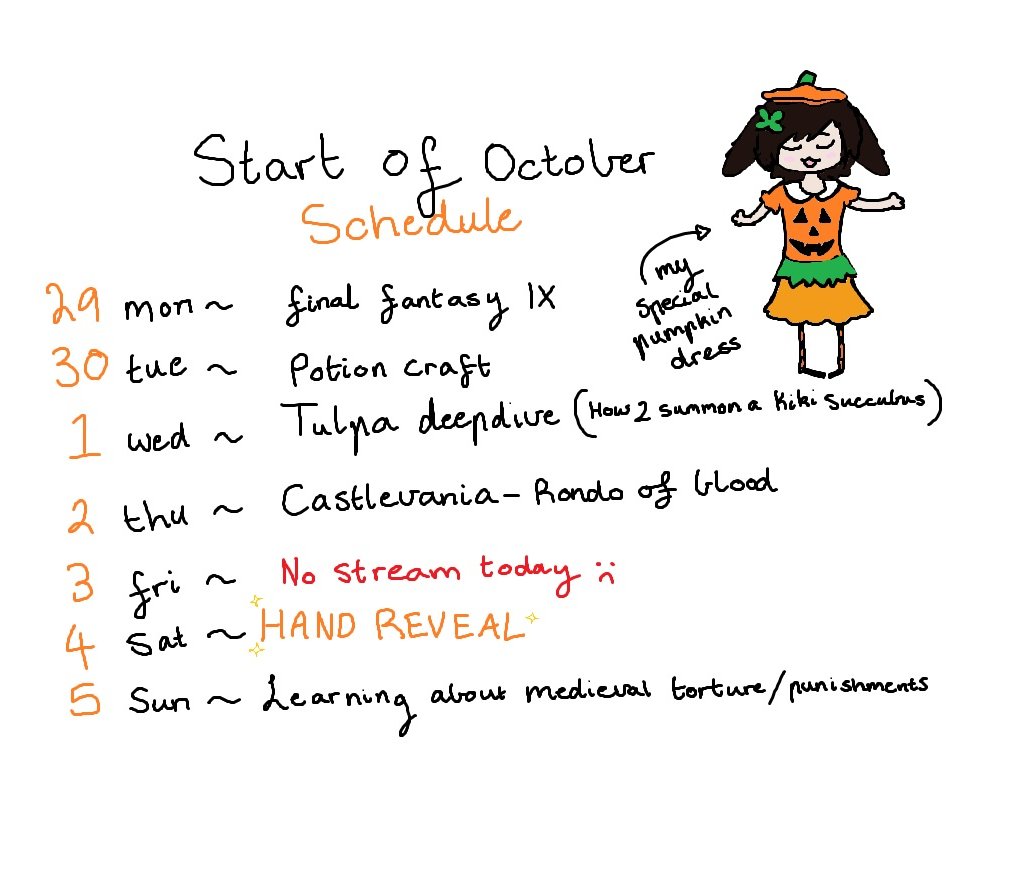 Start of October
Schedule
my
special
pumpkin
dress
29 mon ~ final fantasy IX
30 tue ~ Potion craft
1 wed ~ Tulpa deepdive (How 2 summon a Kiki succubus)
2 thu ~ Castlevania - Rondo of blood
3 fri ~ No stream today :(
4 Sat ~ HAND REVEAL
5 Sun ~ Learning about medieval torture/punishments